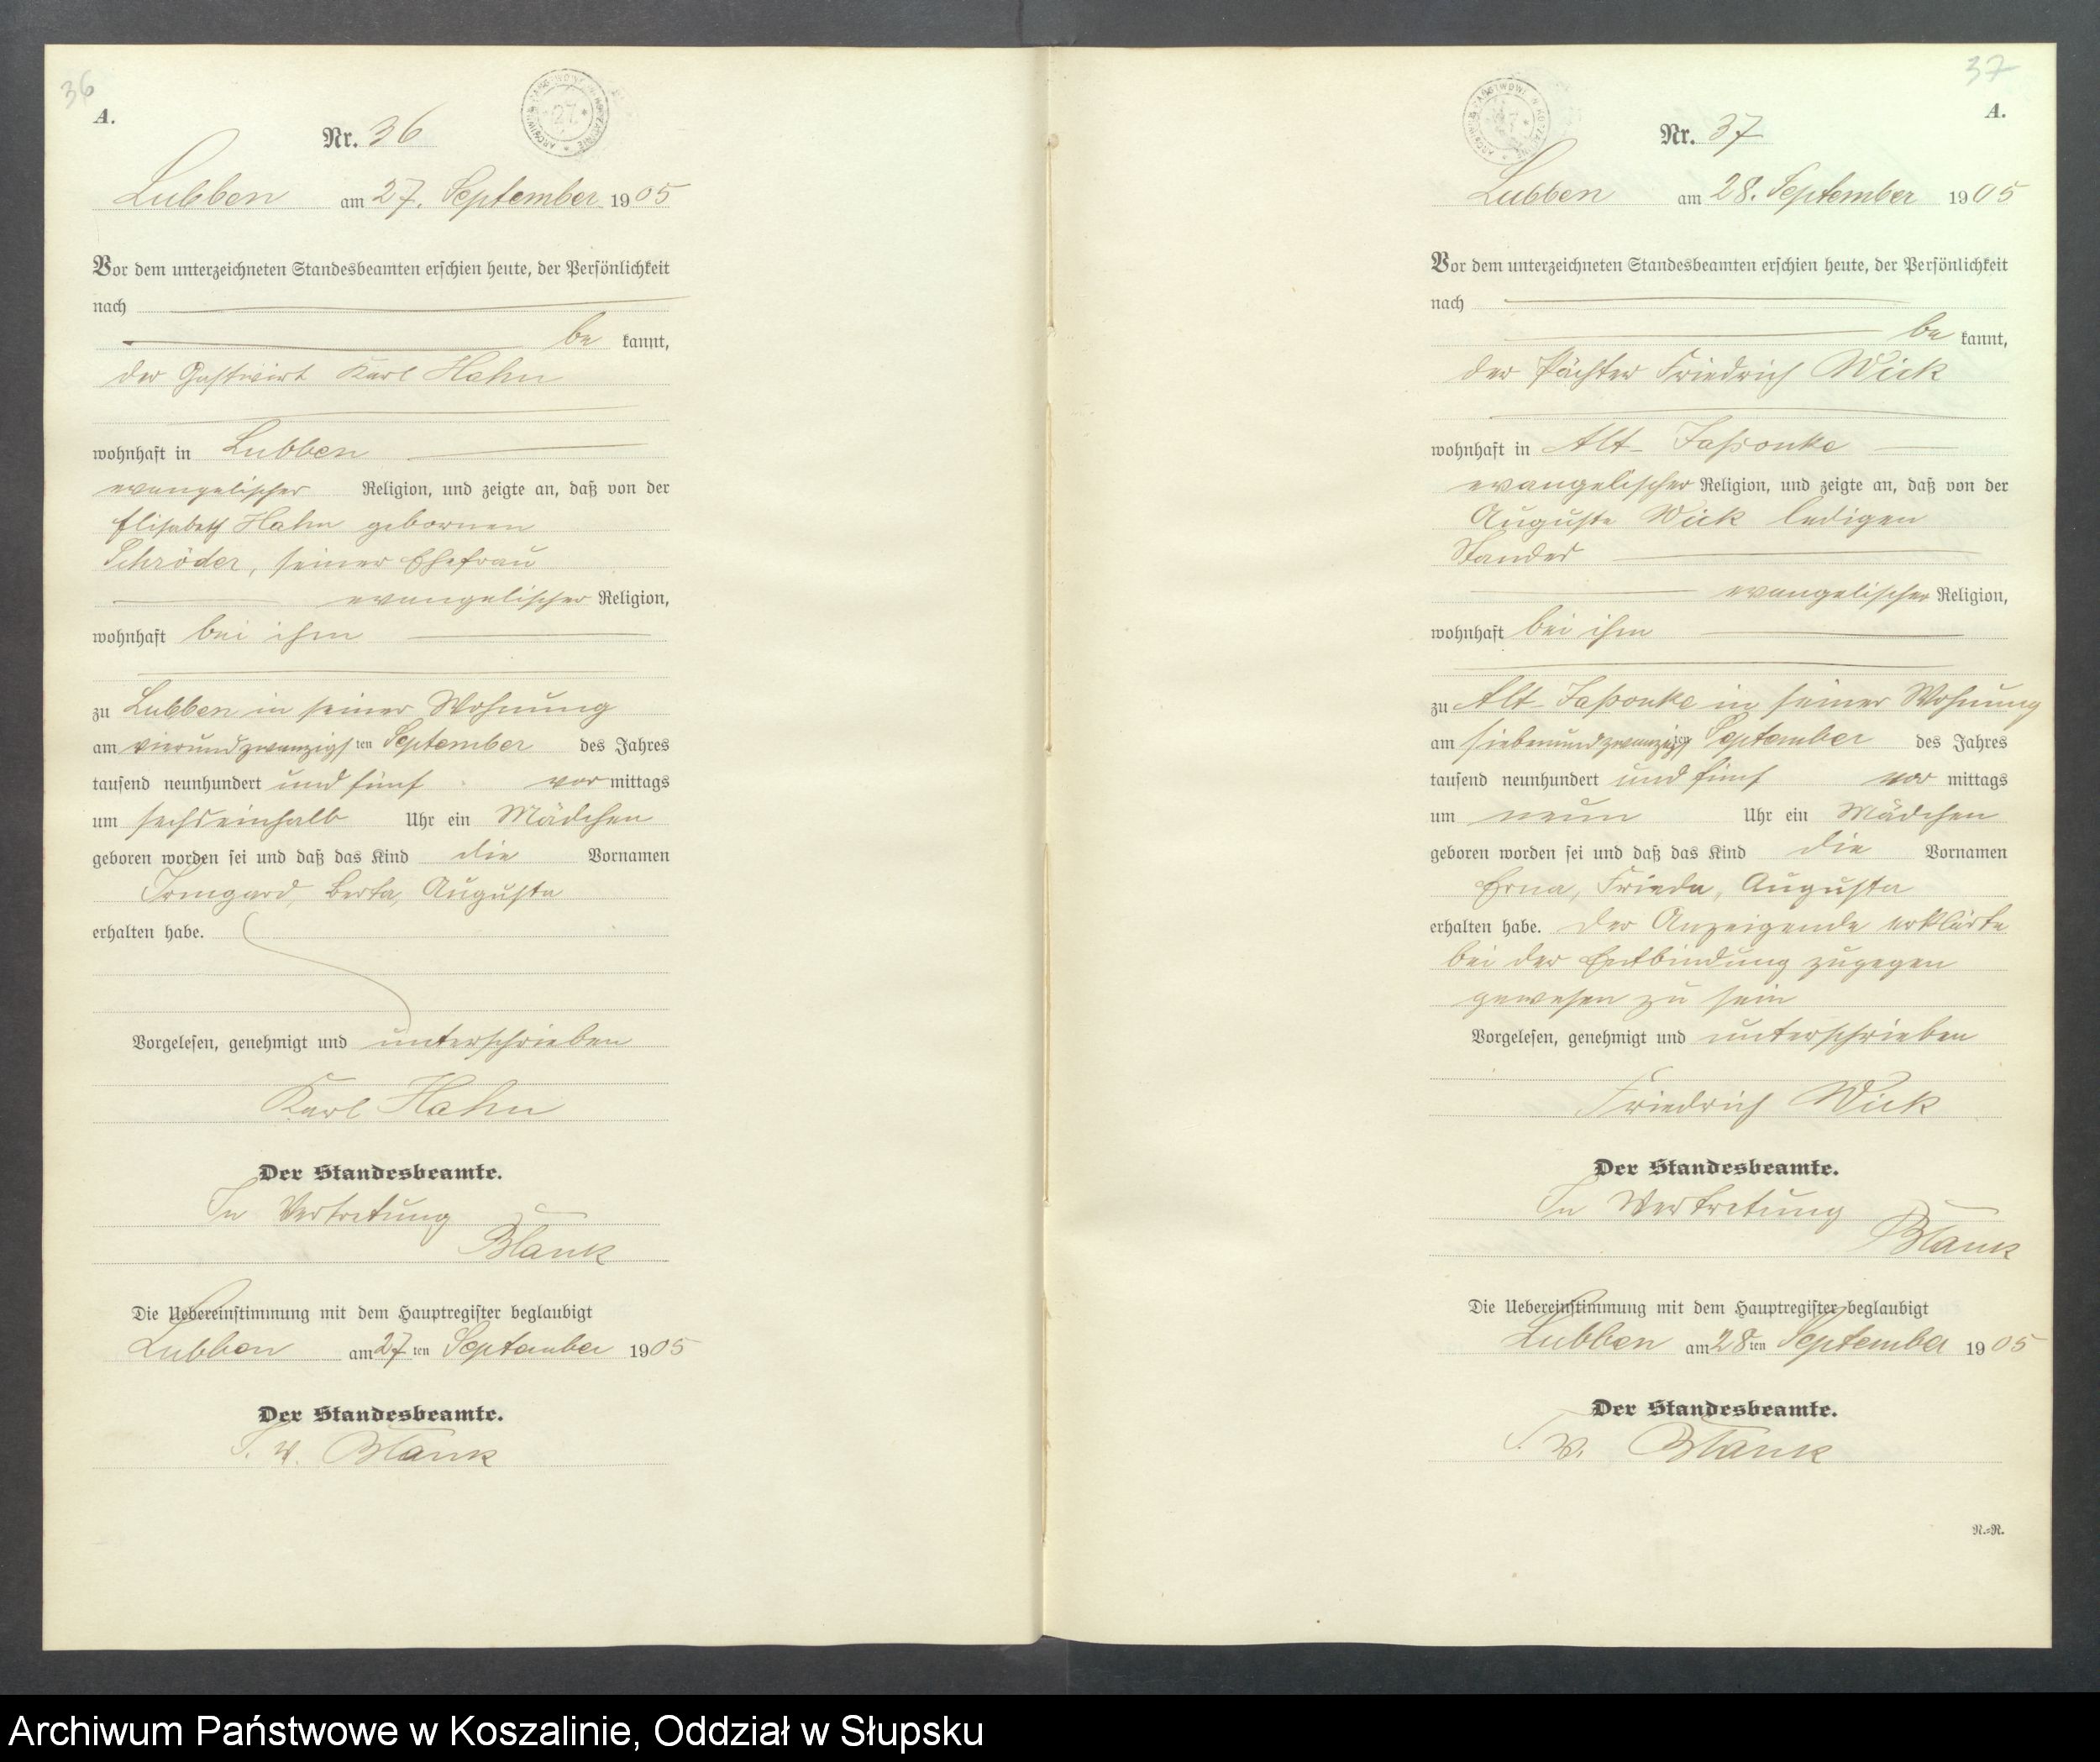 36
A.
Nr. 36
27
Lubben am 27. September 1905
Vor dem unterzeichneten Standesbeamten erschien heute, der Persönlichkeit
nach
be kannt,
der Gastwirt Karl Hahn
wohnhaft in Lubben
evangelischer Religion, und zeigte an, daß von der
Elisabeth Hahn gebornen
Schröder, seiner Ehefrau
evangelischer Religion,
wohnhaft bei ihm
zu Lubben in seiner Wohnung
am vierundzwanzigsten September des Jahres
tausend neunhundert und fünf vor mittags
um sechseinhalb Uhr ein Mädchen
geboren worden sei und daß das Kind die Vornamen
Irmgard, Berta, Auguste
erhalten habe.
Vorgelesen, genehmigt und unterschrieben
Karl Hahn
Der Standesbeamte.
In Vertretung
Blank
Die Uebereinstimmung mit dem Hauptregister beglaubigt
Lubben am 27ten September 1905
Der Standesbeamte.
I. V. Blank
37
A.
Nr. 37
Lubben am 28. September 1905
Vor dem unterzeichneten Standesbeamten erschien heute, der Persönlichkeit
nach
be kannt,
der Pächter Friedrich Wick
wohnhaft in Alt-Jaßonke
evangelischer Religion, und zeigte an, daß von der
Auguste Wick ledigen
Standes
evangelischer Religion,
wohnhaft bei ihm
zu Alt-Jaßonke in seiner Wohnung
am siebenundzwanzigsten September des Jahres
tausend neunhundert und fünf vor mittags
um neun Uhr ein Mädchen
geboren worden sei und daß das Kind die Vornamen
Erna, Frieda, Auguste
erhalten habe. Der Anzeigende erklärte
bei der Entbindung zugegen
gewesen zu sein
Vorgelesen, genehmigt und unterschrieben
Friedrich Wick
Der Standesbeamte.
In Vertretung
Blank
Die Uebereinstimmung mit dem Hauptregister beglaubigt
Lubben am 28ten September 1905
Der Standesbeamte.
I. V. Blank
R.=R.
Archiwum Państwowe w Koszalinie, Oddział w Słupsku